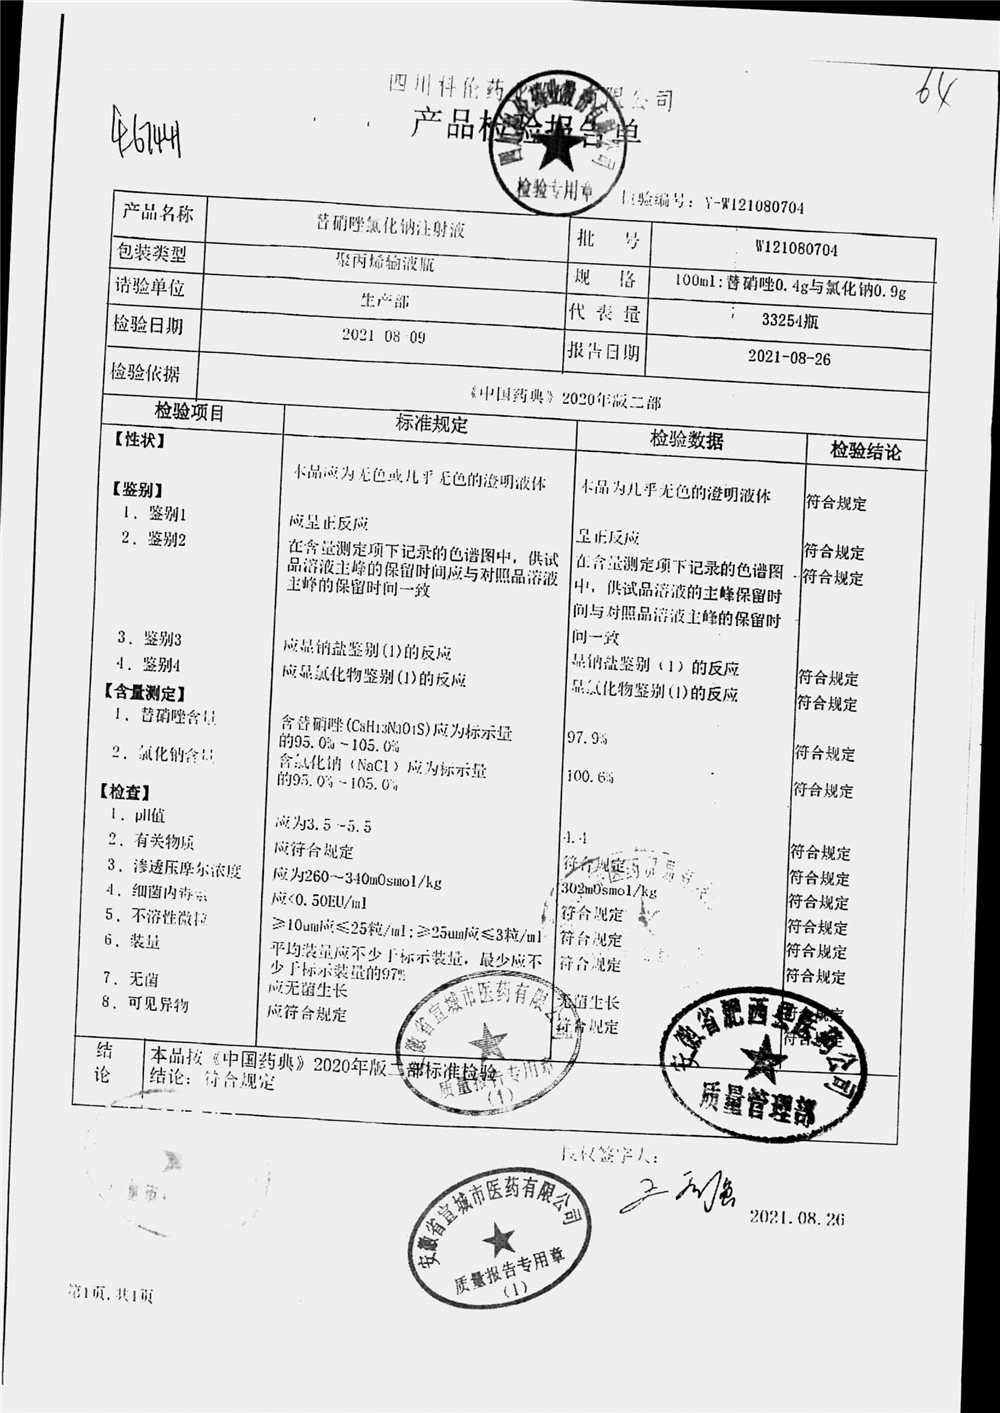 64
四川科伦药 限公司
产品检验报告单
检验专用章
检验编号：Y-W121080704
产品名称 替硝唑氯化钠注射液 批 号 W121080704
包装类型 聚丙烯输液瓶 规 格 100ml:替硝唑0.4g与氯化钠0.9g
请验单位 生产部 代 表 量 33254瓶
检验日期 2021 08 09 报告日期 2021-08-26
检验依据 《中国药典》2020年版二部
检验项目 标准规定 检验数据 检验结论
【性状】
本品应为无色或几乎无色的澄明液体 本品为几乎无色的澄明液体 符合规定
【鉴别】
1．鉴别1 应呈正反应 呈正反应 符合规定
2．鉴别2 在含量测定项下记录的色谱图中，供试 在含量测定项下记录的色谱图 符合规定
品溶液主峰的保留时间应与对照品溶液 中，供试品溶液的主峰保留时
主峰的保留时间一致 间与对照品溶液主峰的保留时
间一致
3．鉴别3 应显钠盐鉴别(1)的反应 显钠盐鉴别（1）的反应 符合规定
4．鉴别4 应显氯化物鉴别(1)的反应 显氯化物鉴别(1)的反应 符合规定
【含量测定】
1．替硝唑含量 含替硝唑(C8H13N3O4S)应为标示量 97.9% 符合规定
的95.0%~105.0%
2．氯化钠含量 含氯化钠（NaCl）应为标示量 100.6% 符合规定
的95.0%~105.0%
【检查】
1．pH值 应为3.5~5.5 4.4 符合规定
2．有关物质 应符合规定 符合规定 符合规定
3．渗透压摩尔浓度 应为260~340mOsmol/kg 302mOsmol/kg 符合规定
4．细菌内毒素 应<0.50EU/ml 符合规定 符合规定
5．不溶性微粒 ≥10um应≤25粒/ml;≥25um应≤3粒/ml 符合规定 符合规定
6．装量 平均装量应不少于标示装量，最少应不 符合规定 符合规定
少于标示装量的97%
7．无菌 应无菌生长 无菌生长 符合规定
8．可见异物 应符合规定 符合规定 符合规定
结论 本品按《中国药典》2020年版二部标准检验
结论：符合规定
安徽省宣城市医药有限公司
质量报告专用章
(1)
安徽省肥西县医药公司
质量管理部
授权签字人：
2021.08.26
安徽省宣城市医药有限公司
质量报告专用章
(1)
第1页,共1页